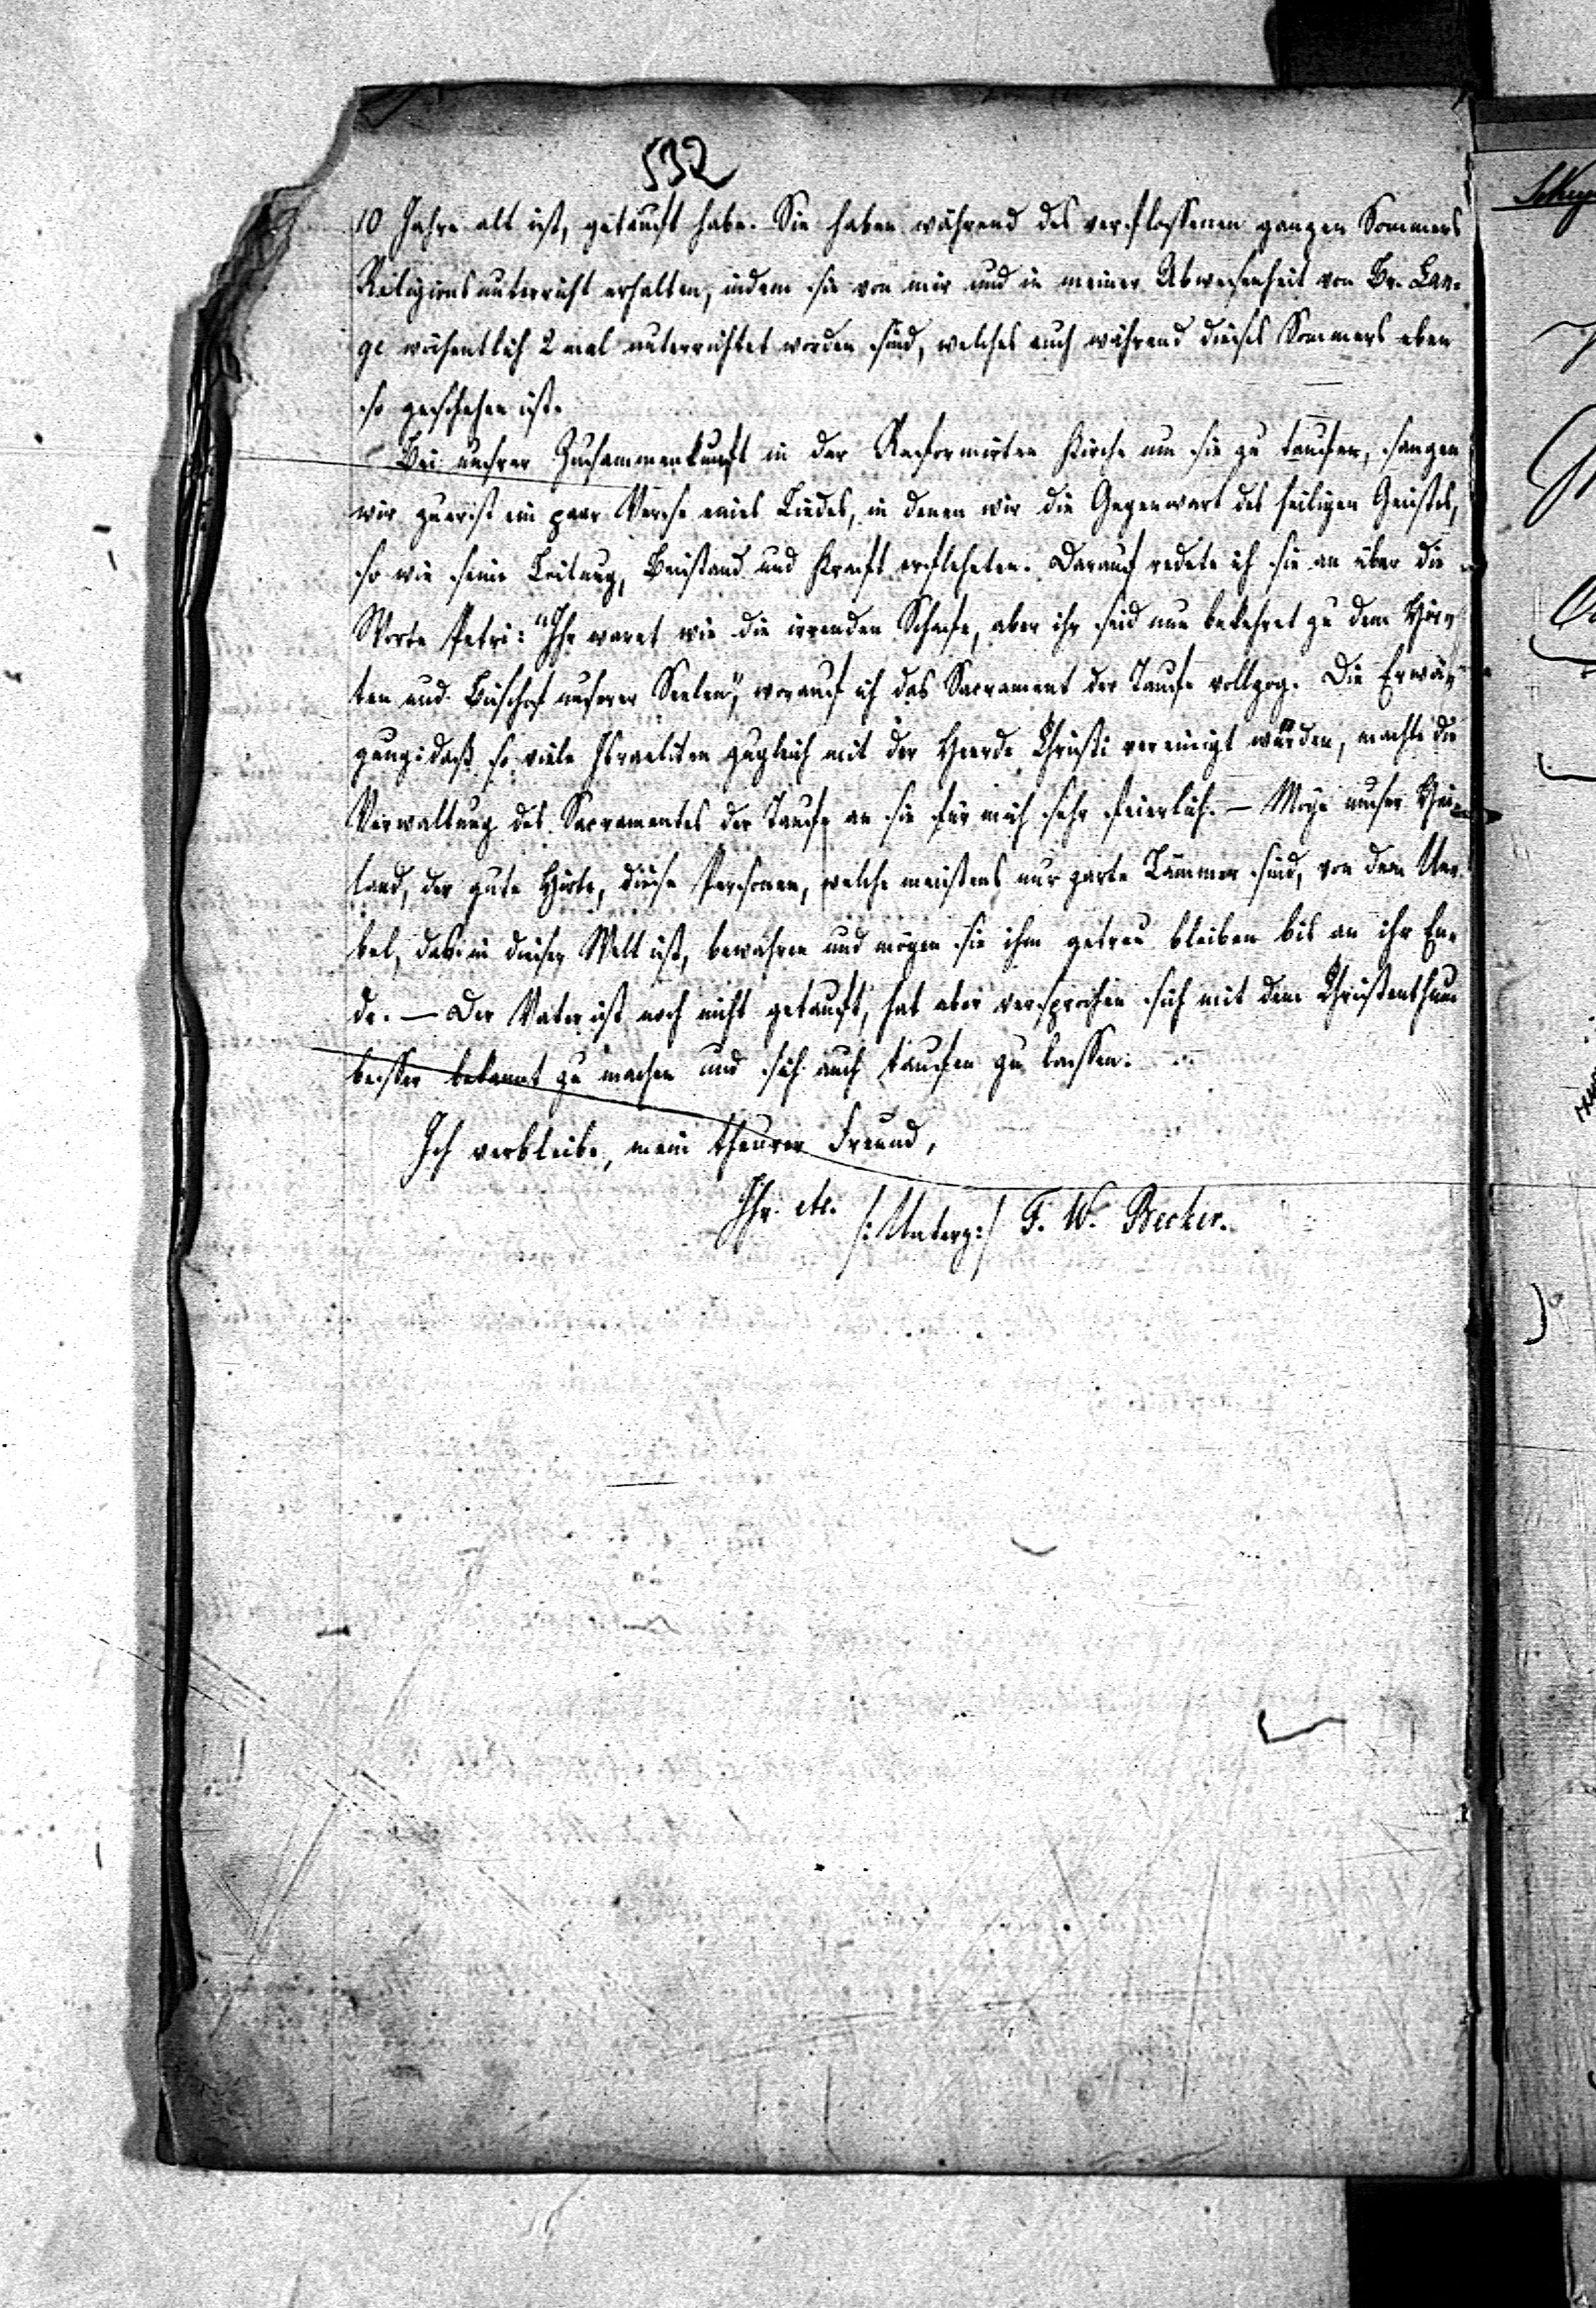 532
10 Jahre alt ist, getauft habe. Sie haben während des verflossenen ganzen Sommers
Religionsunterricht erhalten, indem sie von mir und in meiner Abwesenheit von Br. Lan-
ge wöchentlich 2 mal unterrichtet worden sind, welches auch während dieses Sommers eben
so geschehen ist.
Bei unsrer Zusammenkunft in der Reformirten Kirche um sie zu taufen, sangen
wir zuerst ein paar Verse eines Liedes, in denen wir die Gegenwart des heiligen Geistes,
so wie seine Leitung, Beistand und Kraft erfleheten. Darauf redete ich sie an über die
Worte Petri: "Ihr waret wie die irrenden Schafe, aber ihr seid nun bekehret zu dem Hir-
ten und Bischof unserer Seelen", worauf ich das Sacrament der Taufe vollzog. Die Erwä-
gung, daß so viele Israeliten zugleich mit der Heerde Christi vereinigt würden, machte die
Verwaltung des Sacramentes der Taufe an sie für mich sehr feierlich. — Möge unser Hei-
land, der gute Hirte, diese Personen, welche meistens nur zarte Lämmer sind, von dem Ue-
bel, das in dieser Welt ist, bewahren und mögen sie ihm getreu bleiben bis an ihr En-
de. — Der Vater ist noch nicht getauft, hat aber versprochen sich mit dem Christenthum
besser bekannt zu machen und sich auch taufen zu lassen.
Ich verbleibe, mein theurer Freund,
Ihr etc. /:Unterz:/ F. W. Becker.